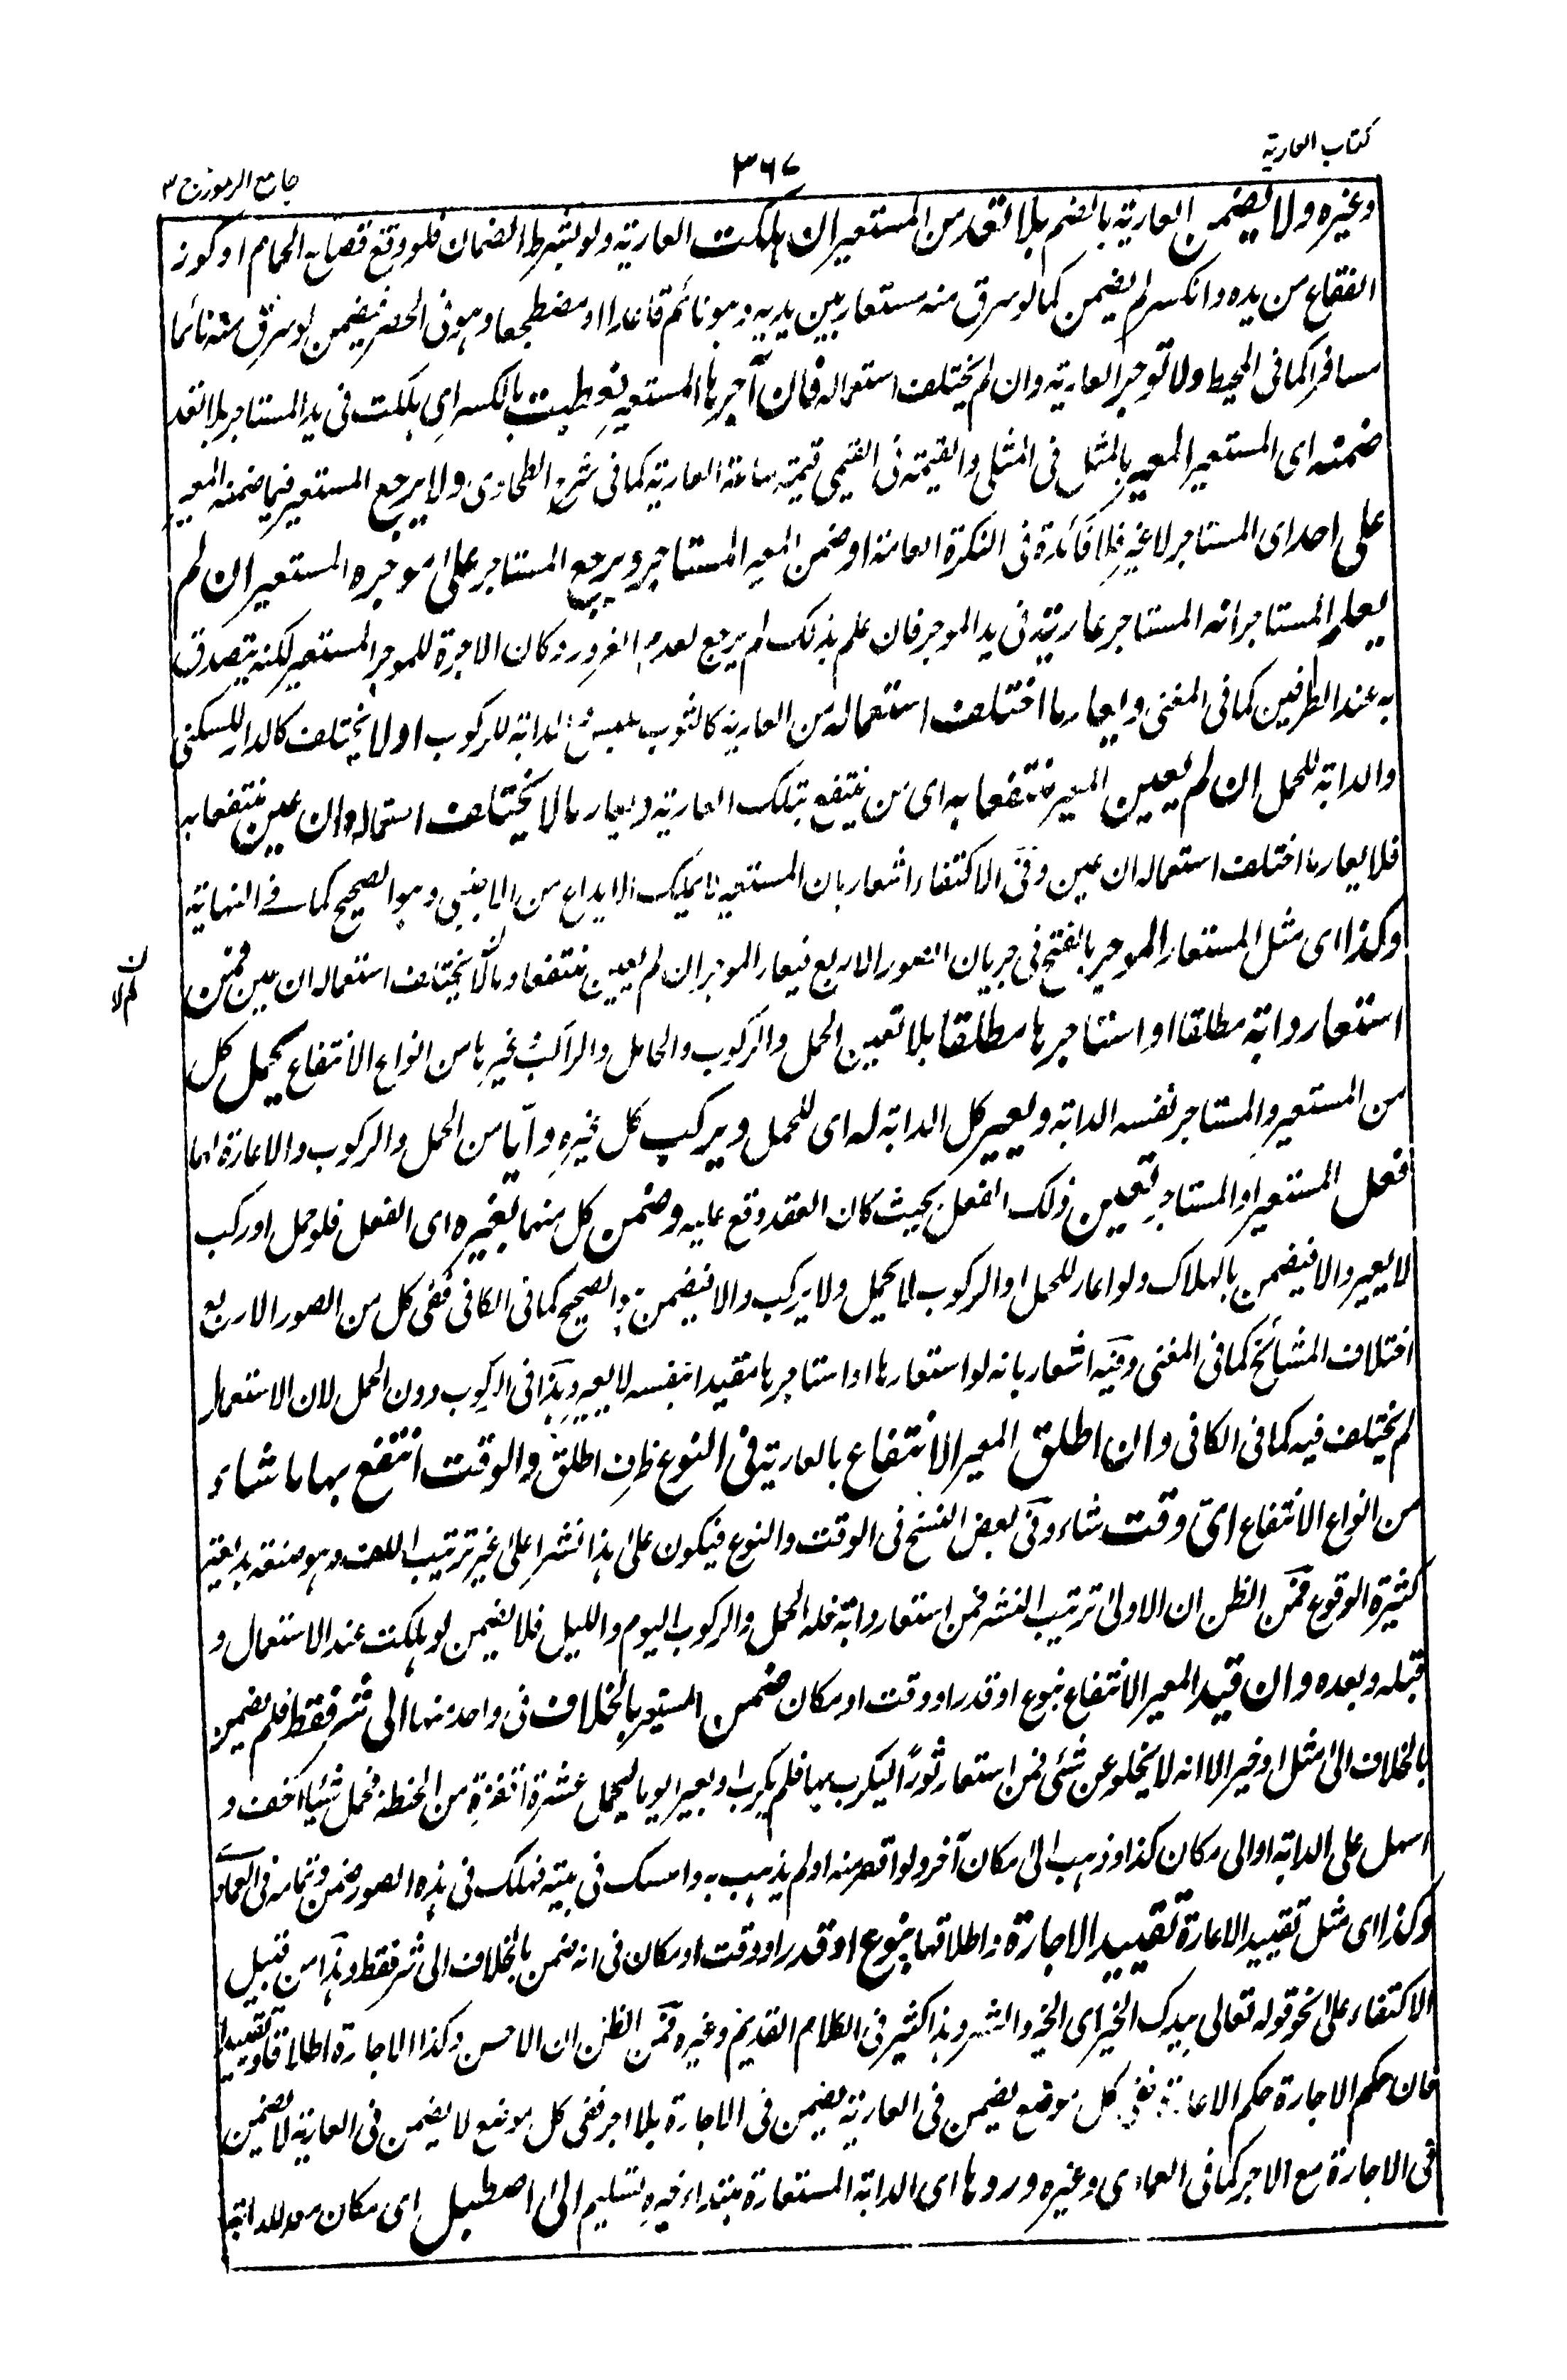 كتاب العارية
٣٦٧
جامع الرموز ج ٣
وغيره ولا يضمن العارية بالضم بلا تعد من المستعير ان هلكت العارية ولو بشرط الضمان فلو وقع قصاع الحمام او كوز
الفقاع من يده وانكسر لم يضمن كما لو سرق منه مستعار بين يديه وهو نائم قاعدا او مضطجعا وهو فى الحضر فيضمن لو سرق منه نائما
مسافرا كما فى المحيط ولا توجر العارية وان لم يختلف استعماله فان آجرها المستعير فعطبت بالكسر اى هلكت فى يد المستاجر بلا تعد
ضمنه اى المستعير المعير بالمثل فى المثلى والقيمة فى القيمى قيمته ساعة العارية كما فى شرح الطحاوى ولا يرجع المستعير فيما ضمنه المعير
على احد اى المستاجر لا غير فلا فائدة فى النكرة العامة او ضمن المعير المستاجر ويرجع المستاجر على موجره المستعير ان لم
يعلم المستاجر انه المستاجر عارية فى يد الموجر فان علم بذلك لم يرجع لعدم الغرور وكان الاجرة للموجر المستعير لكنه يتصدق
به عند الطرفين كما فى المغنى ويعار ما اختلف استعماله من العارية كالثوب للبس والدابة للركوب او لا يختلف كالدار للسكنى
والدابة للحمل ان لم يعين المعير منتفعا به اى من ينتفع بتلك العارية ويعار ما لا يختلف استعماله وان عين منتفعا به
فلا يعار ما اختلف استعماله ان عين وفى الاكتفاء اشعار بان المستعير لا يملك الايداع من الاجنبى وهو الصحيح كما فى النهاية
وكذا اى مثل المستعار الموجر بالفتح فى جريان الصور الاربع فيعار الموجر ان لم يعين منتفعا وما لا يختلف استعماله ان عين فمن
استعار دابة مطلقا او استاجرها مطلقا بلا تعيين الحمل والركوب والحامل والراكب وغيرها من انواع الانتفاع يحمل كل
من المستعير والمستاجر نفسه الدابة ويعير كل الدابة له اى للحمل ويركب كل غيره وايا من الحمل والركوب والاعارة لهما
فعل المستعير او المستاجر تعين ذلك الفعل بحيث كان العقد وقع عليه وضمن كل منهما بغيره اى الفعل فلو حمل او ركب
لا يعير والا فيضمن بالهلاك ولو اعار للحمل او الركوب لا يحمل ولا يركب والا فيضمن هو الصحيح كما فى الكافى ففى كل من الصور الاربع
اختلاف المشائخ كما فى المغنى وفيه اشعار بانه لو استعارها او استاجرها مقيدا بنفسه لا يعير وهذا فى الركوب دون الحمل لان الاستعمال
لم يختلف فيه كما فى الكافى وان اطلق المعير الانتفاع بالعارية فى النوع ظرف اطلق والوقت انتفع بها ما شاء
من انواع الانتفاع اى وقت شاء وفى بعض النسخ فى الوقت والنوع فيكون على هذا نشرا على غير ترتيب اللف وهو صنعة بديعية
كثيرة الوقوع فمن الظن ان الاولى ترتيب النشر فمن استعار دابة فله الحمل والركوب اليوم والليل فلا يضمن لو هلكت عند الاستعمال و
قبله وبعده وان قيد المعير الانتفاع بنوع او قدر او وقت او مكان ضمن المستعير بالخلاف فى واحد منها الى شر فقط فلم يضمن
بالخلاف الى مثل او خير الا انه لا يخلو عن شئى فمن استعار ثورا ليكرب بها فلم يكرب او بعيرا يوما ليحمل عشرة اقفزة من الحنطة فحمل شيئا اخف و
اسهل على الدابة او الى مكان كذا وذهب الى مكان آخر ولو اقصر منه او لم يذهب به وامسك فى بيته فهلك فى هذه الصور ضمن وتمامه فى العمادى
وكذا اى مثل تقييد الاعارة تقييد الاجارة واطلاقها بنوع او قدر او وقت او مكان فى انه ضمن بالخلاف الى شر فقط وهذا من قبيل
الاكتفاء على نحو قوله تعالى بيدك الخير اى الخير والشر وهذا كثير فى الكلام القديم وغيره فمن الظن ان الاحسن وكذا الاجارة اطلاقا وتقييدا
فان حكم الاجارة حكم الاعارة ففى كل موضع يضمن فى العارية يضمن فى الاجارة بلا اجر ففى كل موضع لا يضمن فى العارية لا يضمن
فى الاجارة مع الاجر كما فى العمادى وغيره وردها اى الدابة المستعارة مبتداء خبره تسليم الى اصطبل اى مكان معد للدابة